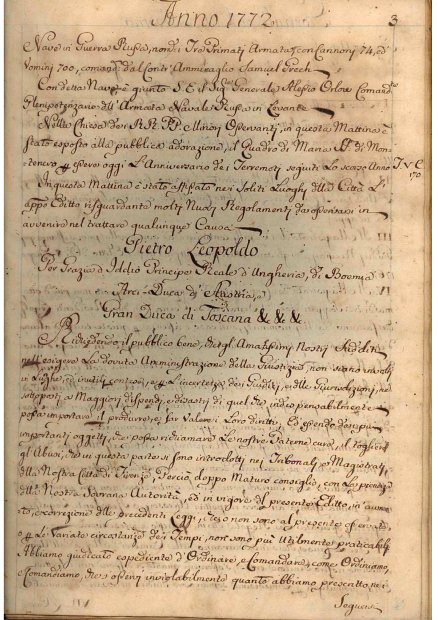 Anno 1772
3
Nave in Guerra Russa, non de Tre Armata con Cannoni 74, ed
Vomini 700, comand: dal Contr'Ammiraglio Samuel Grech
Con detta Nave è giunto S. E. il Sig: Generale Alessio Orlow Comand:te
Plenipotenziario dell'Armata Navale Russa in Levante
Nella Chiesa de RR. PP. Minori Osservanti, in questa Mattina è
stato esposto alla pubblica adorazione, il Quadro di Maria SS. di Mon-
tenero, p essere oggi L'Anniversario de i Terremoti seguiti Lo scorso Anno
T. V. C
170
In questa Mattina è stato affissato nei Soliti Luoghi della Città L'
appo Editto risguardante molti Nuovi Regolamenti da osservarsi in
avvenire nel trattare qualunque Causa
Pietro Leopoldo
Per Grazia d'Iddio Principe Reale d'Ungheria, di Boemia
Arci-Duca di Austria,
Gran Duca di Toscana &. &. &.
il pubblico bene, degl'Amatissimi Nostri Sudditi
nell'esigere La dovuta Amministrazione della Giustizia, non siano
in Lughe, ed inutili contese, e p L'incertezza dei Giudizi, e delle Giurisdizioni,
sottoposti a Maggiori dispendi, e disastri di quel che indispensabilmente
possa importare il produrre, e far Valere i Loro diritti; Ed essendo
importanti oggetti, che possa richiamare Le nostre Paterne cure, il togliere
gl'Abusi, che in questa parte si sono introdotti nei Tribunali, e Magistrati
della Nostra Città di Firenze, Perciò, doppo Maturo consiglio, con La
della Nostra Sovrana Autorità, ed in vigore del presente Editto, in
to, e correzione delle precedenti Leggi, che o non sono al presente osservate,
o p Le Variate circostanze dei Tempi, non sono più Utilmente praticabili
Abbiamo giudicato espediente d'Ordinare, e Comandare, come Ordiniamo,
e Comandiamo, che si osservi inviolabilmente quanto abbiamo presentto nei
Seguen: